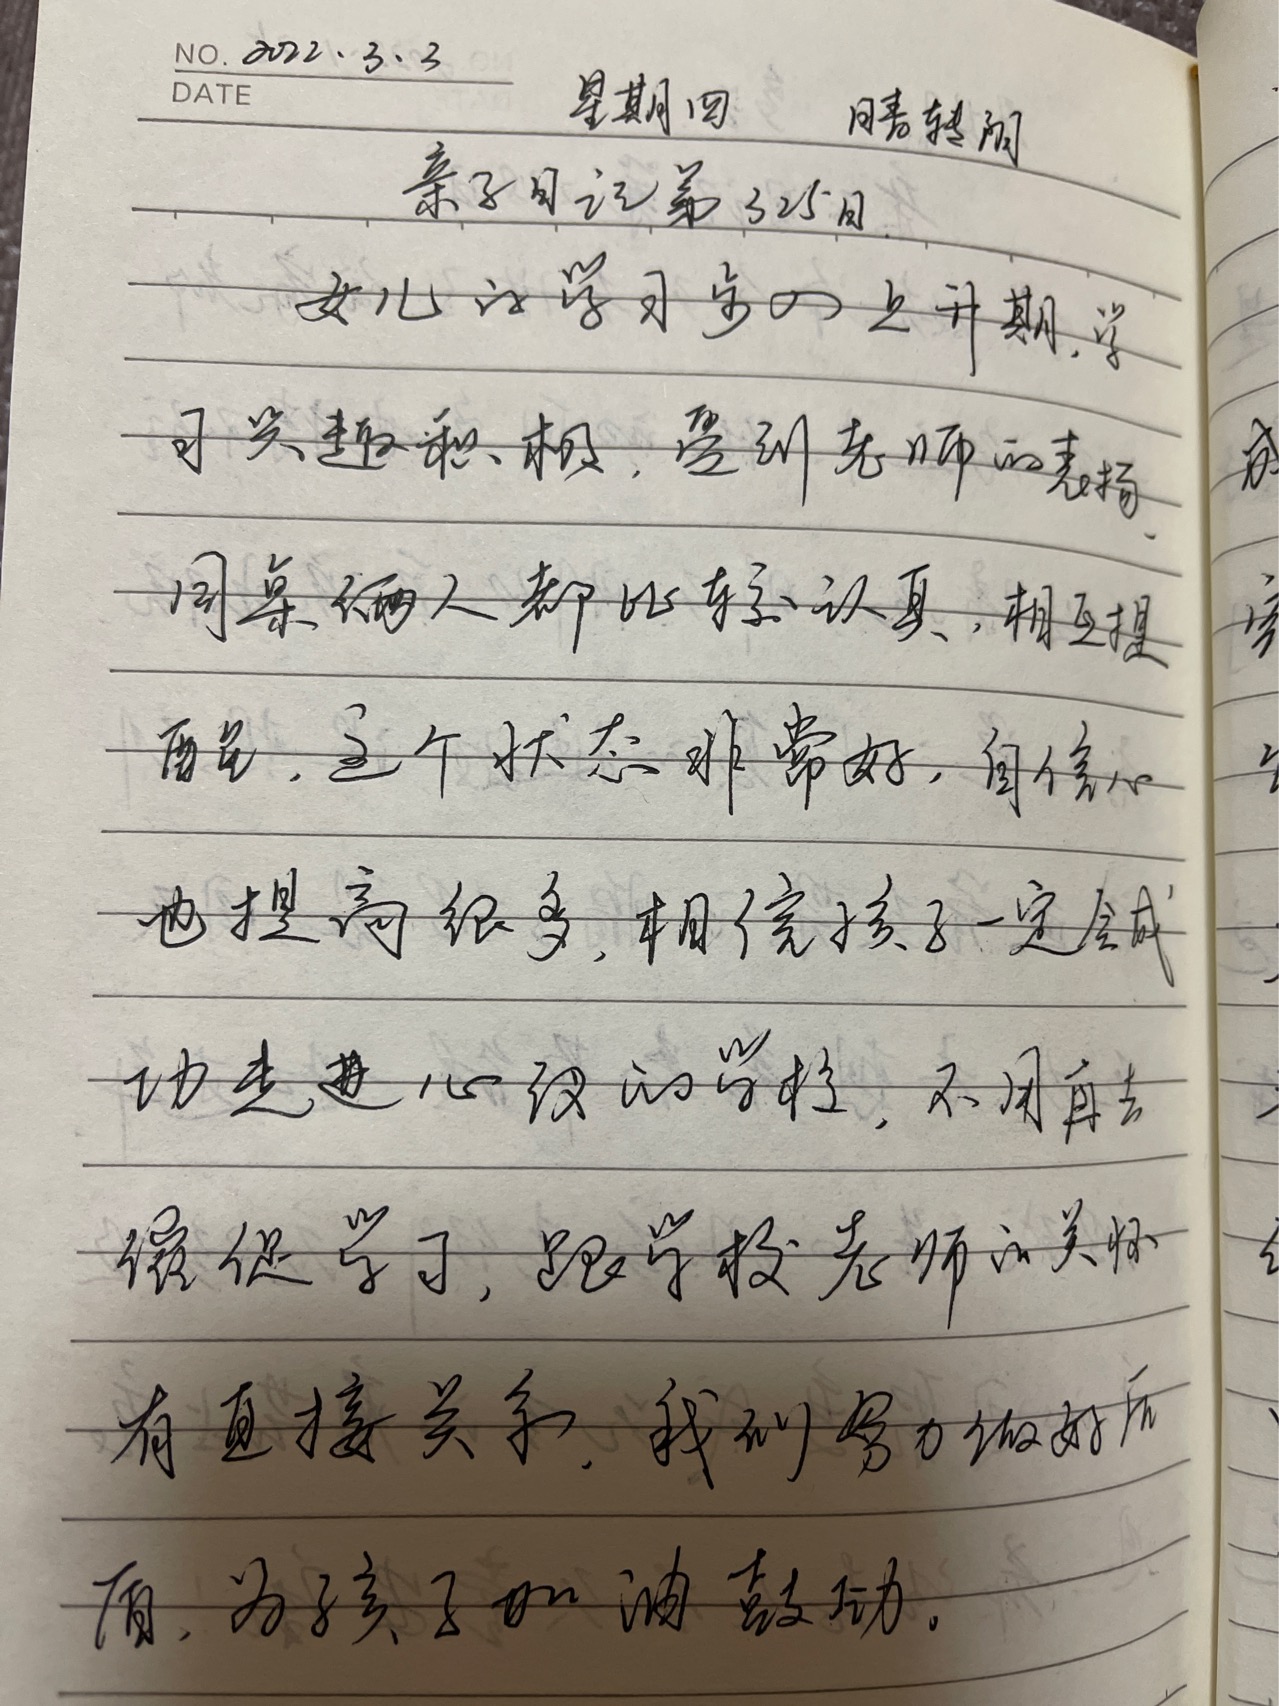 NO. 2022.3.3
DATE
星期四 晴转阴
亲子日记第325日
女儿的学习步入上升期,学
习兴趣积极,受到老师的表扬,
同桌俩人都比较认真,相互提
醒,这个状态非常好,自信心
也提高很多,相信孩子一定会成
功走进心仪的学校,不用再去
催促学习,跟学校老师的关怀
有直接关系,我们努力做好后
盾,为孩子加油鼓劲。